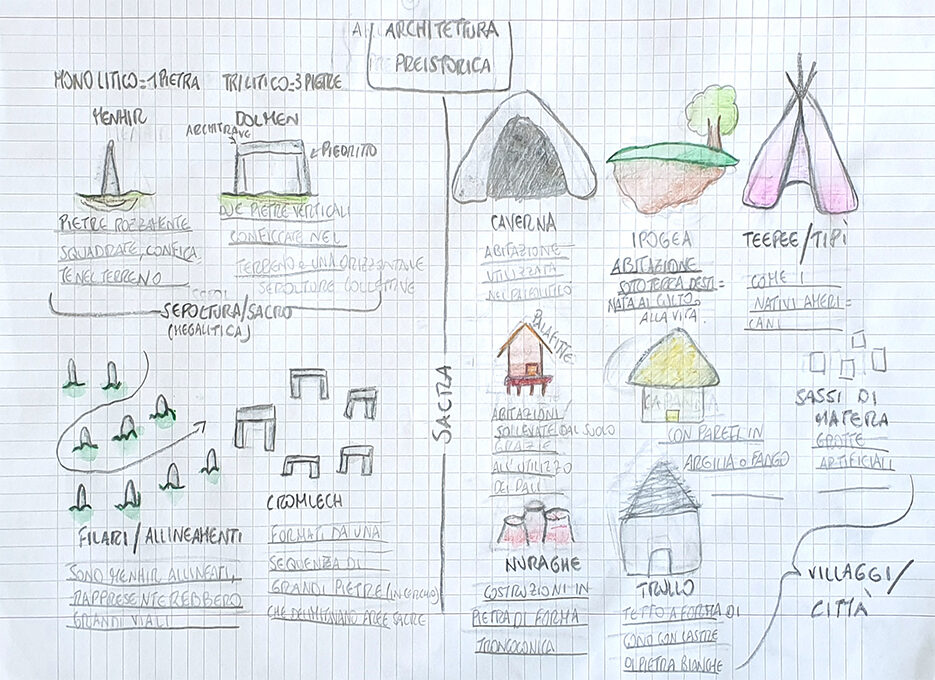 ARCHITETTURA
PREISTORICA
MONOLITICO=1PIETRA
TRILITICO=3PIETRE
MENHIR
DOLMEN
ARCHITRAVE
PIEDRITTO
PIETRE ROZZAMENTE
SQUADRATE, CONFICA
TE NEL TERRENO
DUE PIETRE VERTICALI
CONFICCATE NEL
TERRENO e UNA ORIZZONTALE
SEPOLTURE COLLETTIVE
SEPOLTURA/SACRO
(MEGALITICA)
FILARI/ALLINEAMENTI
SONO MENHIR ALLINEATI,
RAPPRESENTEREBBERO
GRANDI VIALI
CROMLECH
FORMATI DA UNA
SEQUENZA DI
GRANDI PIETRE (IN CERCHIO)
CHE DELIMITANO AREE SACRE
SACRA
CAVERNA
ABITAZIONE
UTILIZZATA
NEL PALEOLITICO
IPOGEA
ABITAZIONE
SOTOTERRA DESTI=
NATA AL CULTO,
ALLA VITA.
TEEPEE/TIPÌ
COME I
NATIVI AMERI=
CANI
PALAFITTE
ABITAZIONI
SOLLEVATE DAL SUOLO
GRAZIE
ALL'UTILIZZO
DEI PALI
CAPANNA
CON PARETI IN
ARGILIA O FANGO
SASSI DI
MATERA
GROTTE
ARTIFICIALI
NURAGHE
COSTRUZIONI IN
PIETRA DI FORMA
TRONCOCONICA
TRULLO
TETTO A FORMA DI
CONO CON LASTRE
DI PIETRA BIANCHE
VILLAGGI/
CITTÀ